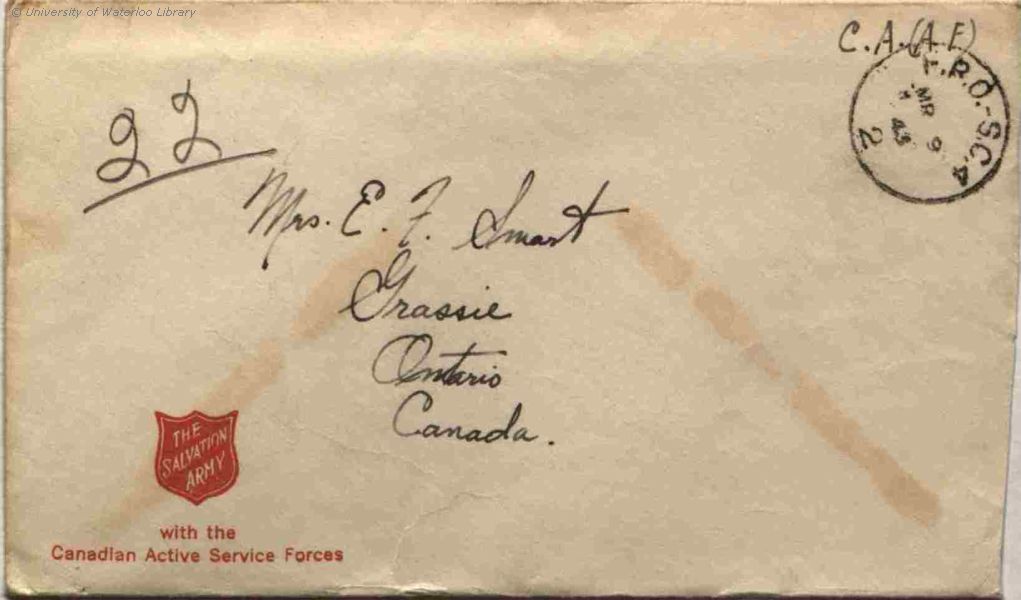 © University of Waterloo Library
C.A.(A.F.)
F.P.O.-S.C.4
MR 9
43
2
22
Mrs. E. F. Smart
Grassie
Ontario
Canada.
THE
SALVATION
ARMY
with the
Canadian Active Service Forces